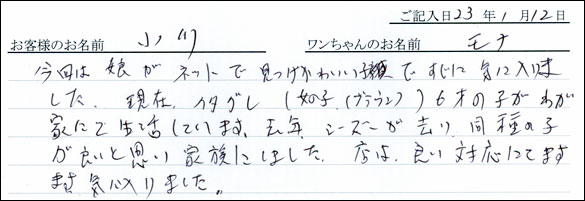 ご記入日 23 年 1 月 12 日
お客様のお名前 小川 ワンちゃんのお名前 モナ
今回は 娘が ネットで 見つけかわいい で すぐに 気に入りま
した. 現在, イタグレ (女の子 (ブラウン) 6才の子が わが
家にて 生活しています. 去年, シーズーが 去り, 同種の子
が良いと思い 家族にしました. 店は, 良い 対応にて ます
ます 気に入りました。